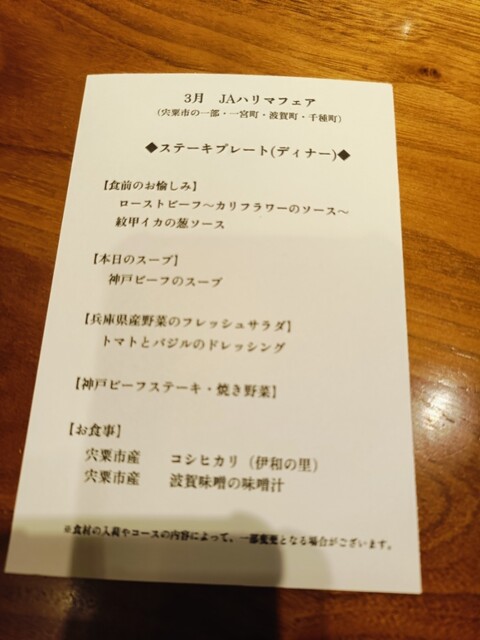 3月 JAハリマフェア
(宍粟市の一部・一宮町・波賀町・千種町)
◆ステーキプレート(ディナー)◆
【食前のお愉しみ】
ローストビーフ～カリフラワーのソース～
紋甲イカの葱ソース
【本日のスープ】
神戸ビーフのスープ
【兵庫県産野菜のフレッシュサラダ】
トマトとバジルのドレッシング
【神戸ビーフステーキ・焼き野菜】
【お食事】
宍粟市産 コシヒカリ（伊和の里）
宍粟市産 波賀味噌の味噌汁
※食材の入荷やコースの内容によって、一部変更となる場合がございます。